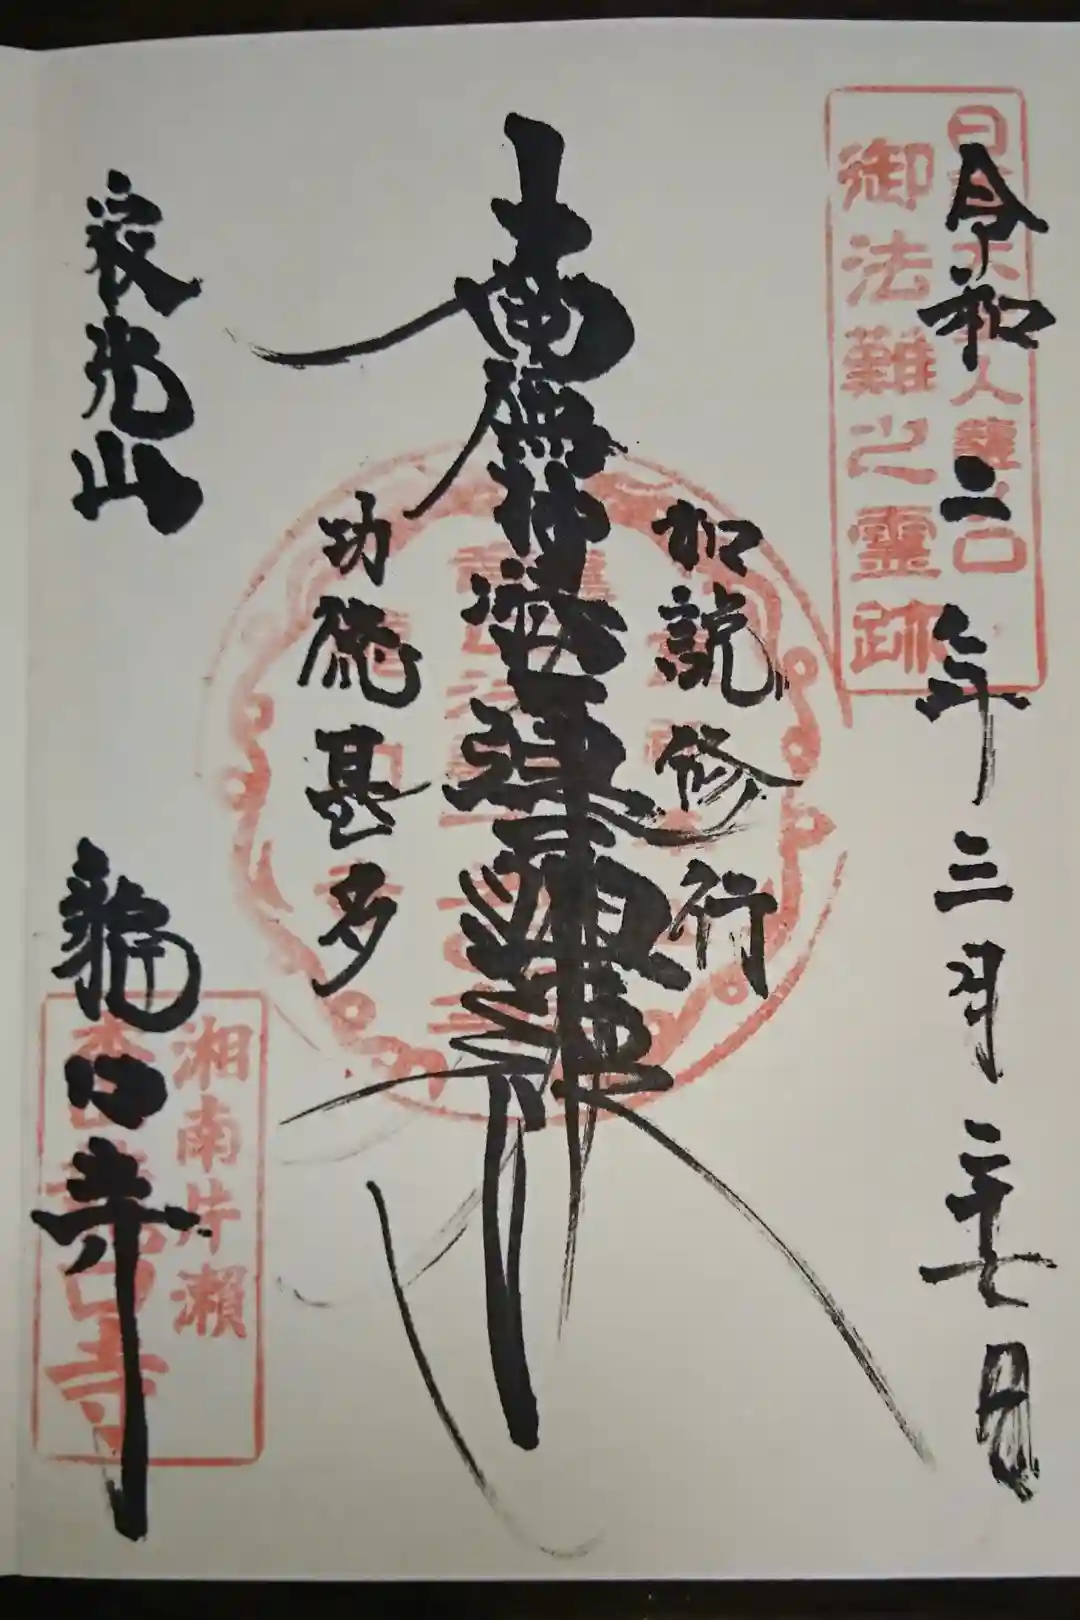 令和二年三月二十七日
日蓮大聖人龍ノ口
御法難之霊跡
如説修行
南無妙法蓮華経
功徳甚多
寂光山
龍口寺
湘南片瀬
本山龍口寺